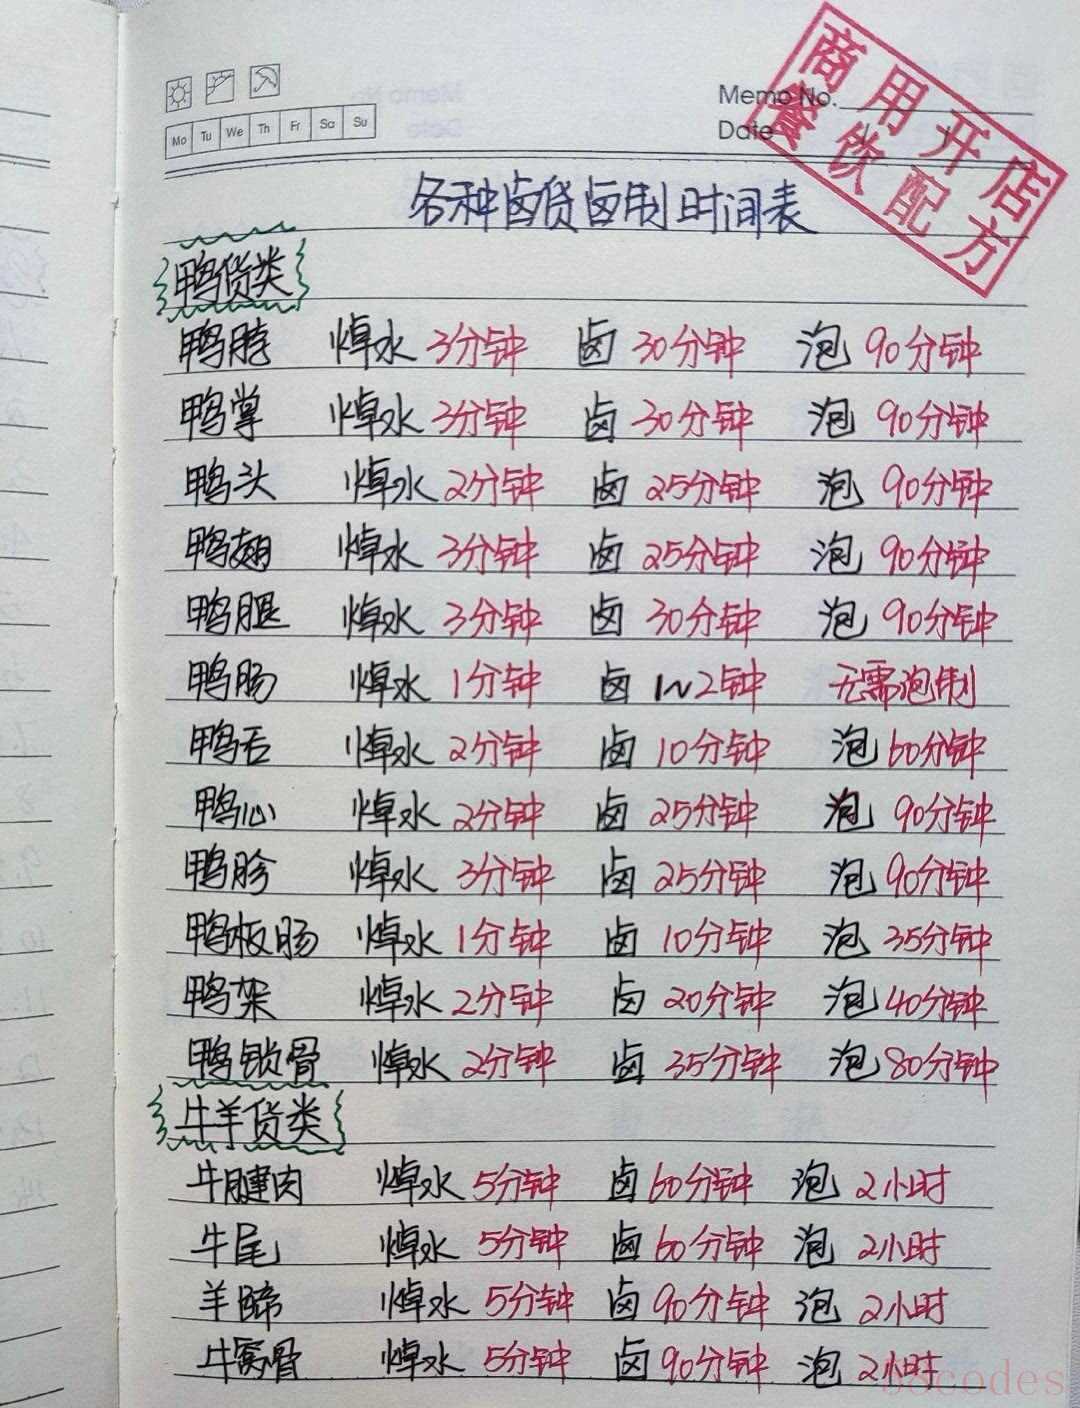 Memo No.
Date
Mo Tu We Th Fr Sa Su
商用开店
餐饮配方
各种卤货卤制时间表
鸭货类
鸭脖 焯水 3分钟 卤 30分钟 泡 90分钟
鸭掌 焯水 3分钟 卤 30分钟 泡 90分钟
鸭头 焯水 2分钟 卤 25分钟 泡 90分钟
鸭翅 焯水 3分钟 卤 25分钟 泡 90分钟
鸭腿 焯水 3分钟 卤 30分钟 泡 90分钟
鸭肠 焯水 1分钟 卤 1~2钟 无需泡制
鸭舌 焯水 2分钟 卤 10分钟 泡 60分钟
鸭心 焯水 2分钟 卤 25分钟 泡 90分钟
鸭胗 焯水 3分钟 卤 25分钟 泡 90分钟
鸭板肠 焯水 1分钟 卤 10分钟 泡 35分钟
鸭架 焯水 2分钟 卤 20分钟 泡 40分钟
鸭锁骨 焯水 2分钟 卤 35分钟 泡 80分钟
牛羊货类
牛腱肉 焯水 5分钟 卤 60分钟 泡 2小时
牛尾 焯水 5分钟 卤 60分钟 泡 2小时
羊蹄 焯水 5分钟 卤 90分钟 泡 2小时
牛窝骨 焯水 5分钟 卤 90分钟 泡 2小时
58codes